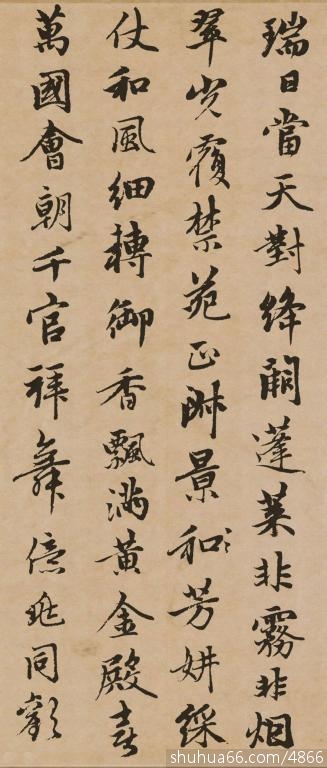 瑞日當天對絳闕蓬萊非霧非烟
翠光覆禁苑正淑景和芳妍綵
仗和風細轉御香飄滿黃金殿喜
萬國會朝千官拜舞億兆同歡
shuhua66.com/4866